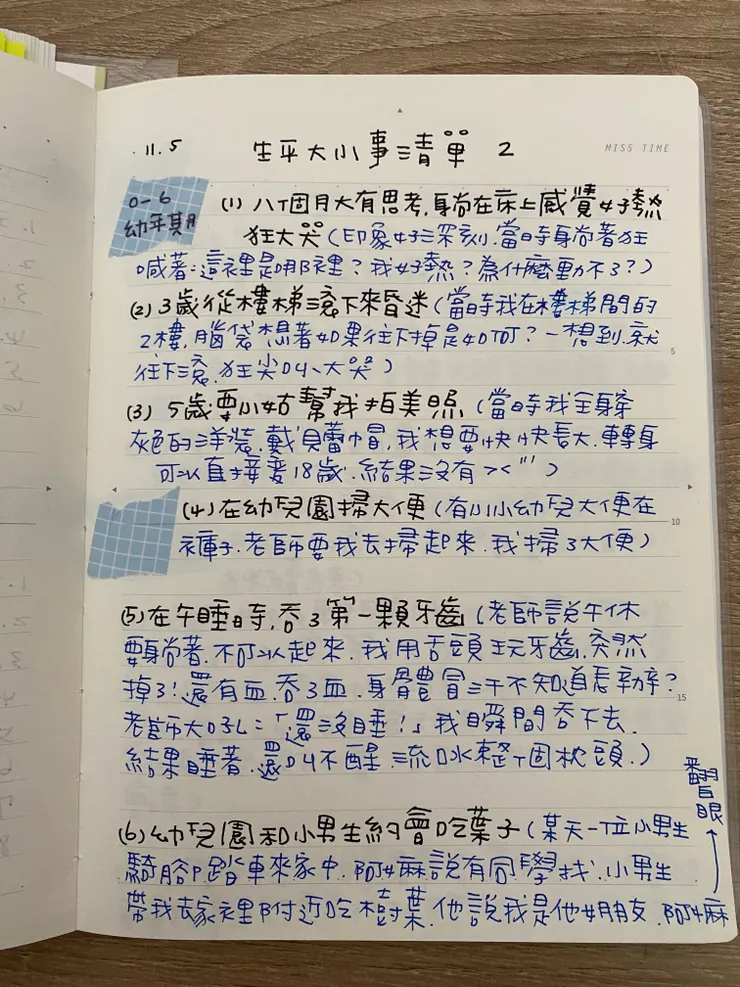 11.5 生平大小事清單 2
MISS TIME
0-6
幼年期
(1) 八個月大有思考,躺在床上感覺好熱
狂大哭(印象好深刻.當時躺著狂
喊著:這裡是哪裡?我好熱?為什麼動不了?)
(2) 3歲從樓梯滾下來昏迷(當時我在樓梯間的
2樓,腦袋想著如果往下掉是如何?一想到.就
往下滾.狂尖叫、大哭)
5
(3) 5歲要小姑幫我拍美照(當時我全身穿
灰色的洋裝.戴貝蕾帽,我想要快快長大.轉身
可以直接變18歲.結果沒有><''')
(4)在幼兒園掃大便(有小小幼兒大便在
10
褲子.老師要我去掃起來.我掃了大便)
(5)在午睡時,吞了第一顆牙齒(老師說午休
要躺著.不可以起來.我用舌頭玩牙齒.突然
掉了!還有血.吞了血.身體冒汗不知道怎麼辦?
15
老師大吼:「還沒睡!」我瞬間吞下去.
結果睡著.還叫不醒.流口水整個枕頭.)
(6)幼兒園和小男生約會吃葉子(某天一位小男生
騎腳踏車來家中.阿嬤說有同學找.小男生
帶我去家裡附近吃樹葉.他說我是他女朋友.阿嬤
翻白眼